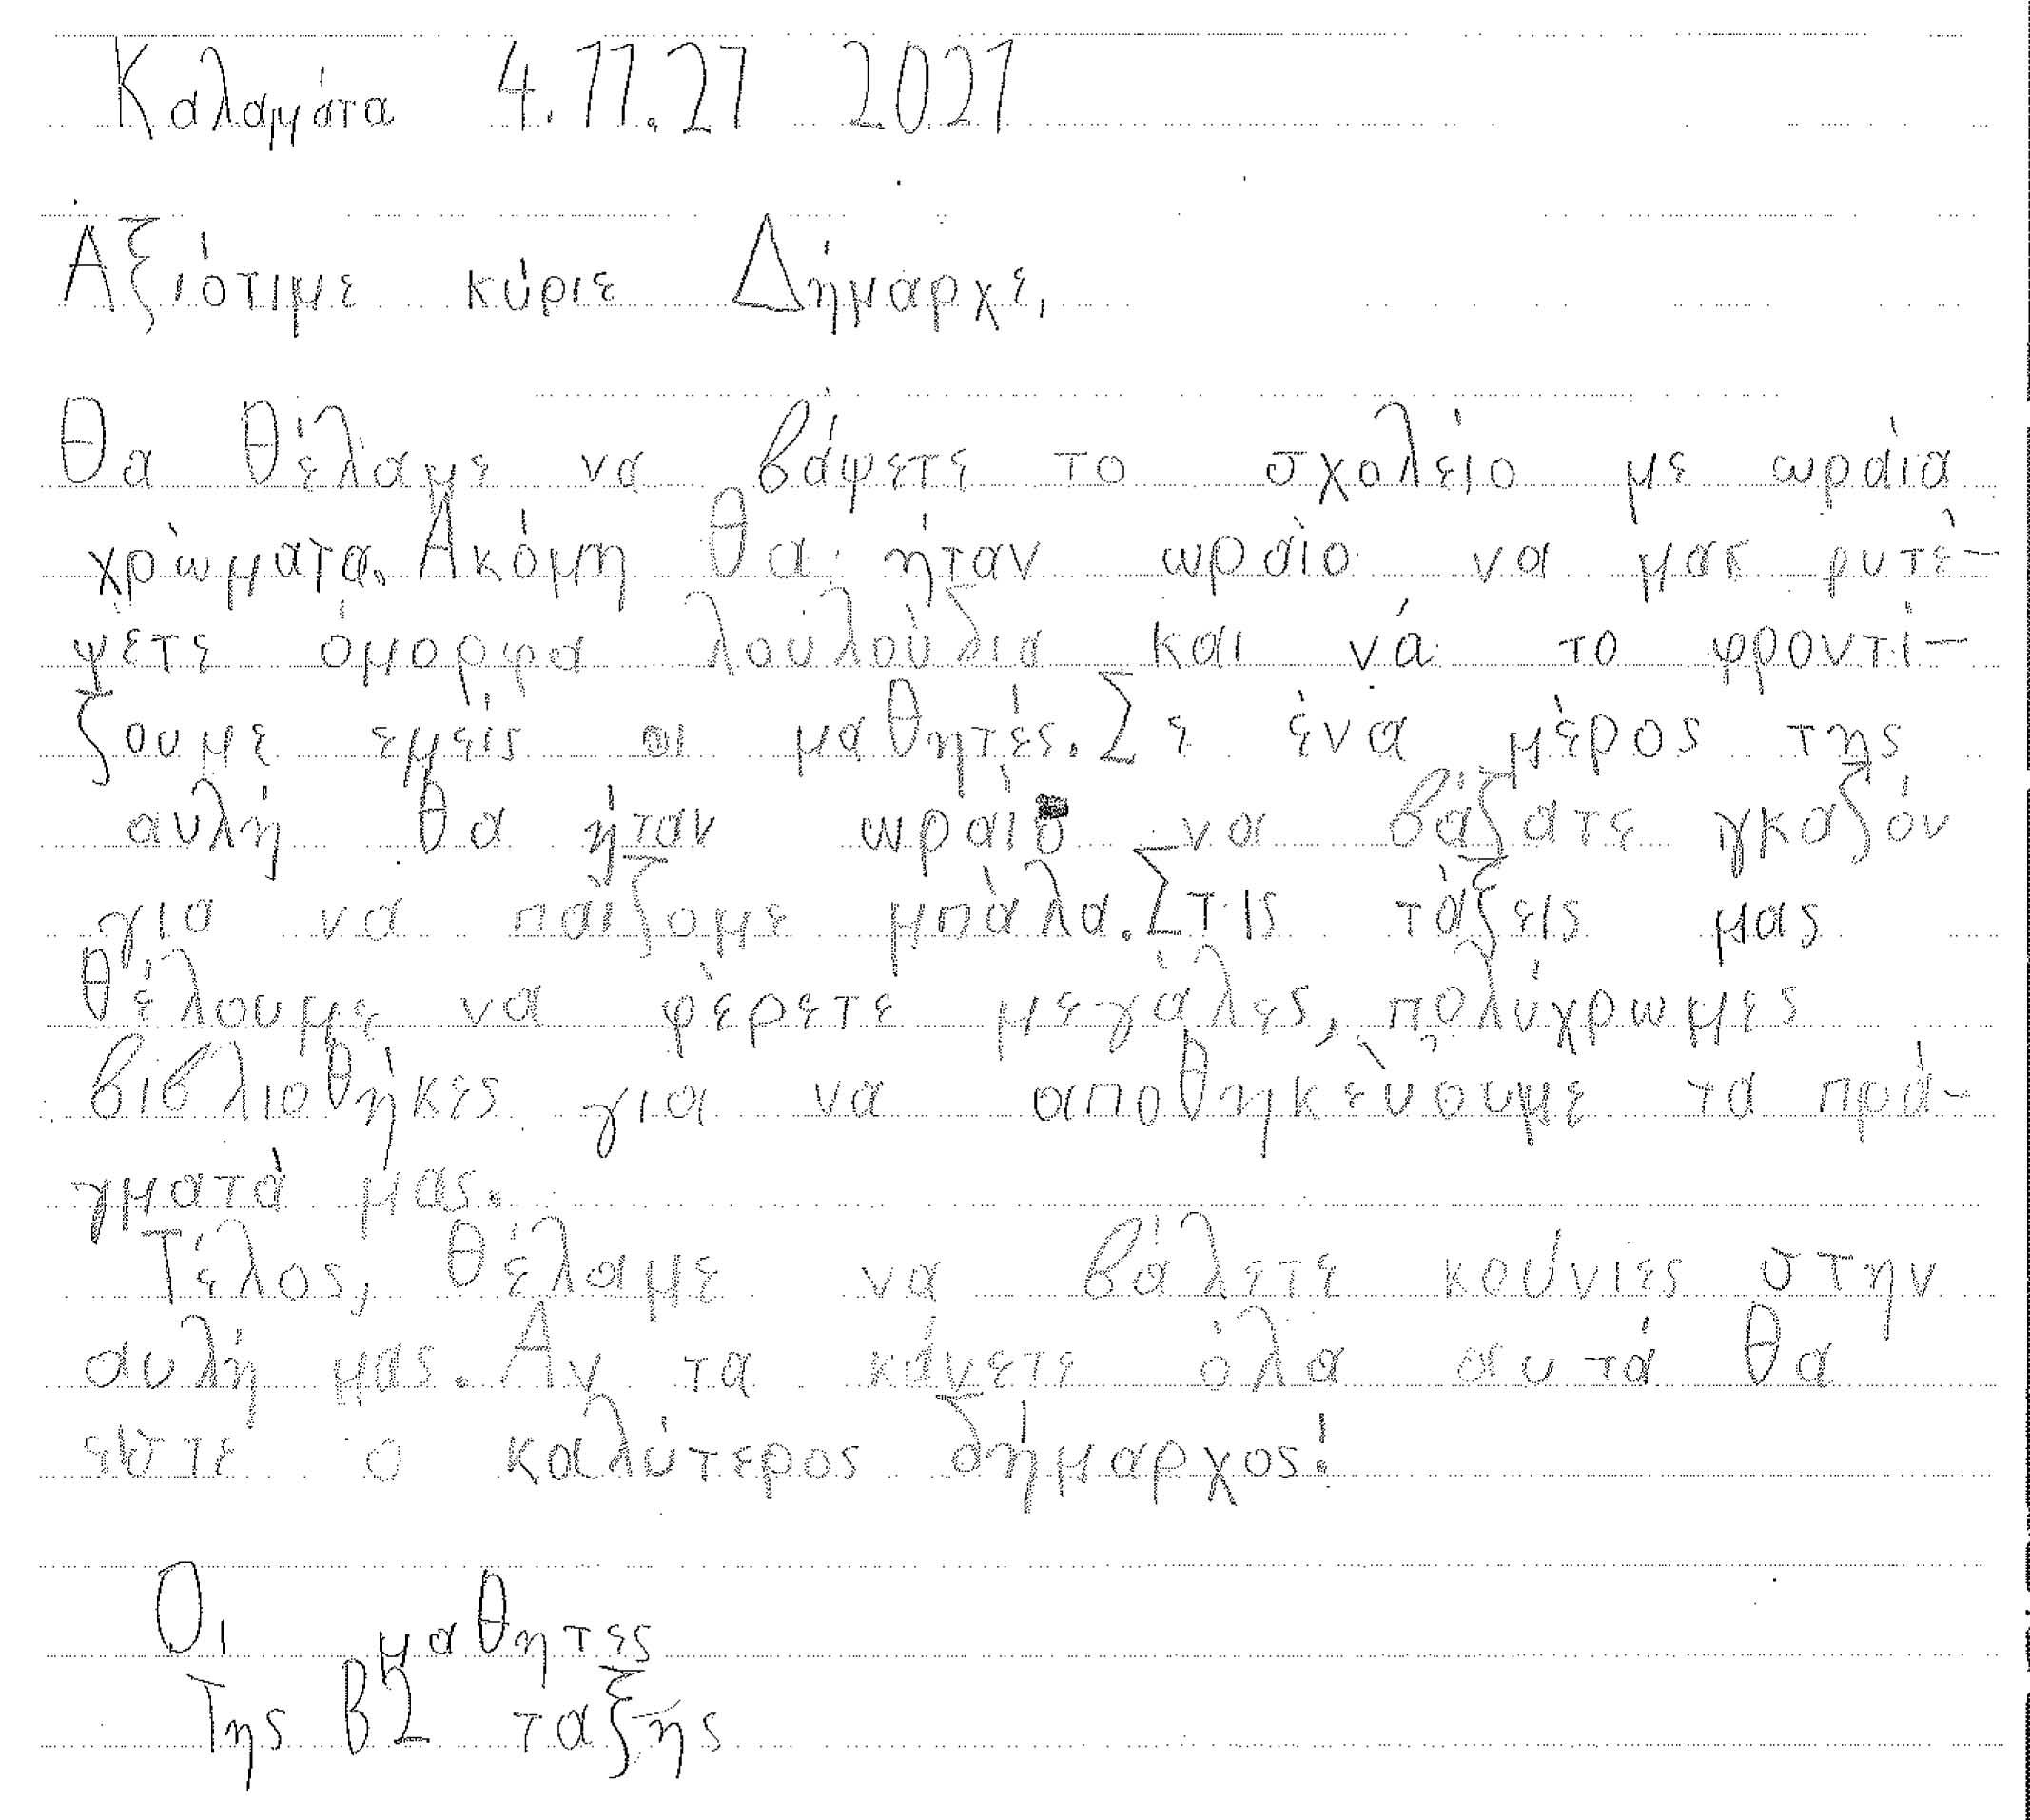 Καλαμάτα 4.11.21 2021
Αξιότιμε κύριε Δήμαρχε,
Θα θέλαμε να βάψετε το σχολείο με ωραία
χρώματα. Ακόμη θα ήταν ωραίο να μας ρυτέ-
ψετε όμορφα λουλούδια και νά το φροντί-
ζουμε εμείς οι μαθητές. Σε ένα μέρος της
αυλή θα ήταν ωραίο να βάζατε γκαζόν
για να παίζομε μπάλα. Στις τάξεις μας
θέλουμε να φέρετε μεγάλες, πολύχρωμες
βιβλιοθήκες για να αποθηκεύουμε τα πρά-
γματά μας.
Τέλος, θέλαμε να βάλετε κούνιες στην
αυλή μας. Αν τα κάνετε όλα αυτά θα
είστε ο καλύτερος δήμαρχος!
Οι μαθητες
Της Β2 ταξης